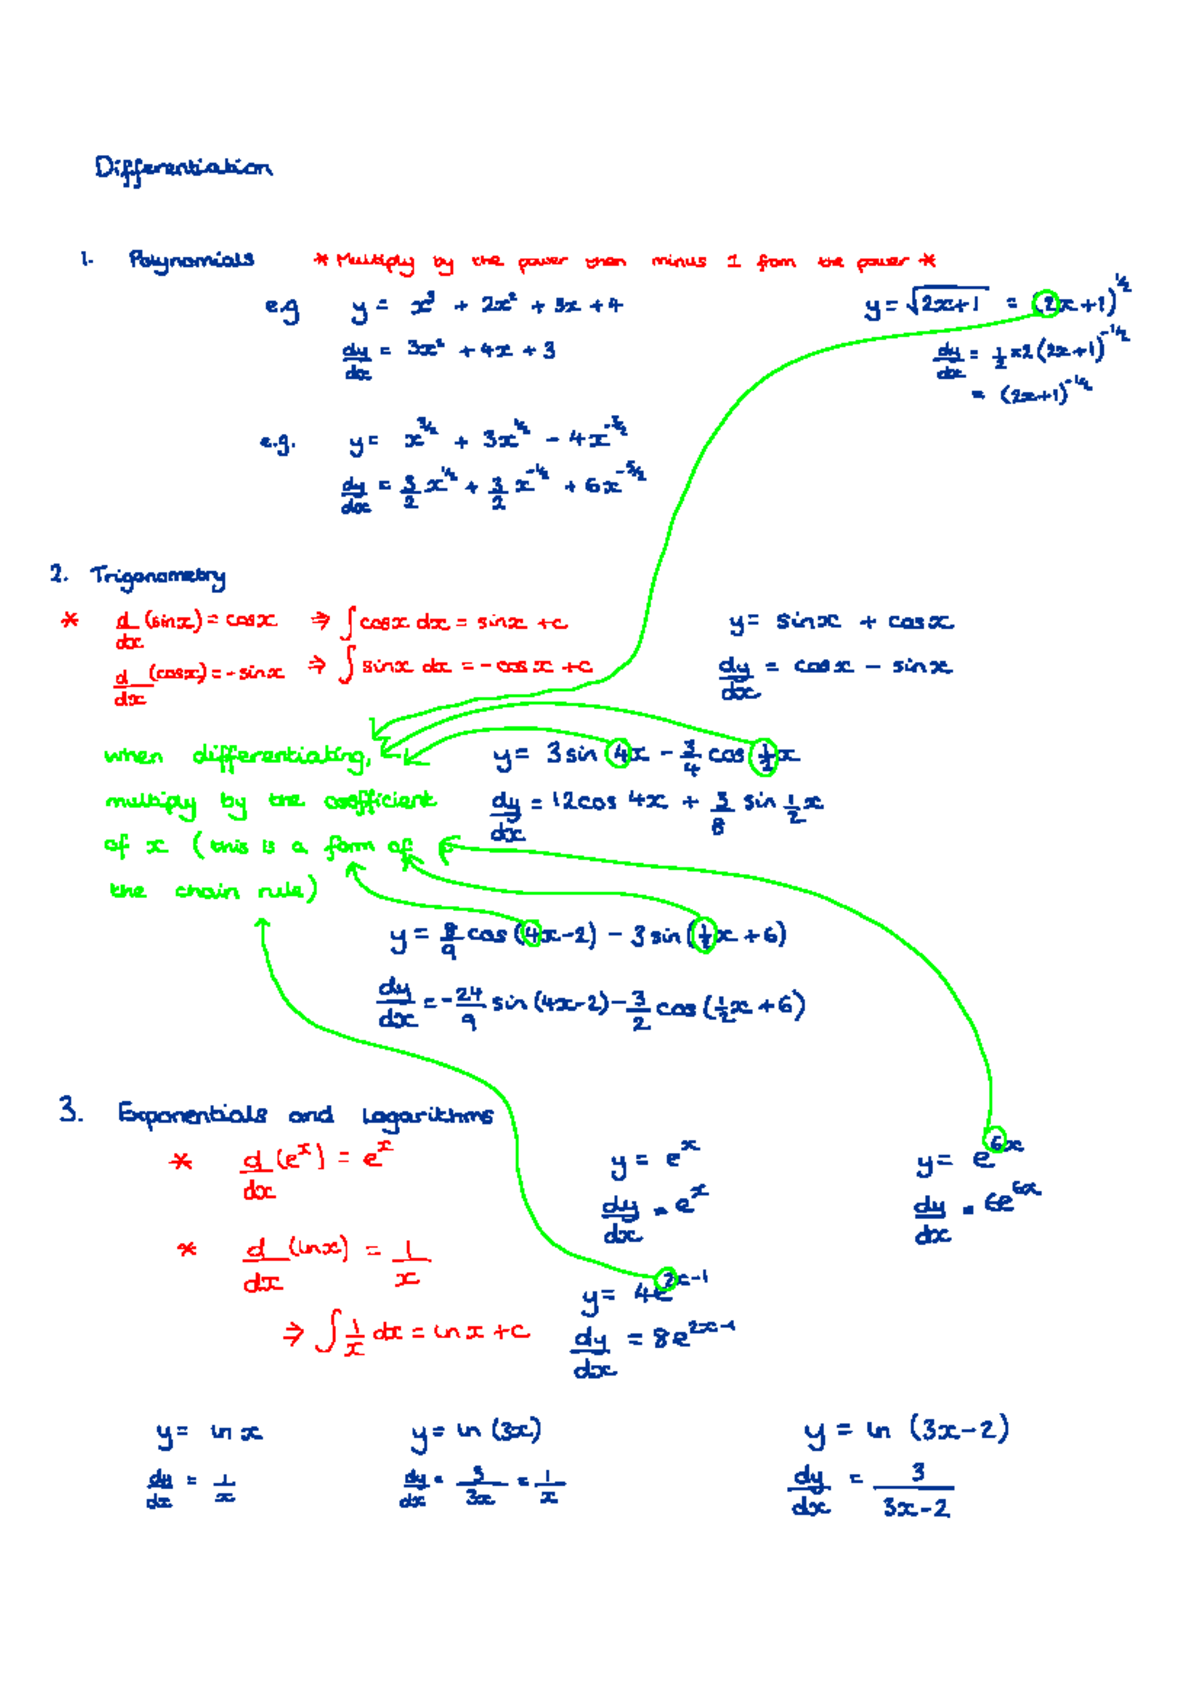 Differentiation
1. Polynomials * Multiply by the power then minus 1 from the power *
e.g y = x³ + 2x² + 3x + 4
dy/dx = 3x² + 4x + 3
y = √(2x+1) = (2x+1)^(1/2)
dy/dx = 1/2 × 2(2x+1)^(-1/2)
= (2x+1)^(-1/2)
e.g. y = x^(3/2) + 3x^(1/2) - 4x^(-3/2)
dy/dx = 3/2 x^(1/2) + 3/2 x^(-1/2) + 6x^(-5/2)
2. Trigonometry
* d/dx (sinx) = cosx ⇒ ∫cosx dx = sinx + c
d/dx (cosx) = -sinx ⇒ ∫sinx dx = -cosx + c
y = sinx + cosx
dy/dx = cosx - sinx
when differentiating,
multiply by the coefficient
of x (this is a form of
the chain rule)
y = 3sin 4x - 3/4 cos 1/2 x
dy/dx = 12cos 4x + 3/8 sin 1/2 x
y = 8/9 cos (4x-2) - 3sin(1/2 x + 6)
dy/dx = -24/9 sin (4x-2) - 3/2 cos (1/2 x + 6)
3. Exponentials and Logarithms
* d/dx (e^x) = e^x
y = e^x
dy/dx = e^x
y = e^(6x)
dy/dx = 6e^(6x)
* d/dx (lnx) = 1/x
⇒ ∫ 1/x dx = ln x + c
y = 4e^(2x-1)
dy/dx = 8e^(2x-1)
y = ln x
dy/dx = 1/x
y = ln (3x)
dy/dx = 3/3x = 1/x
y = ln (3x-2)
dy/dx = 3/(3x-2)